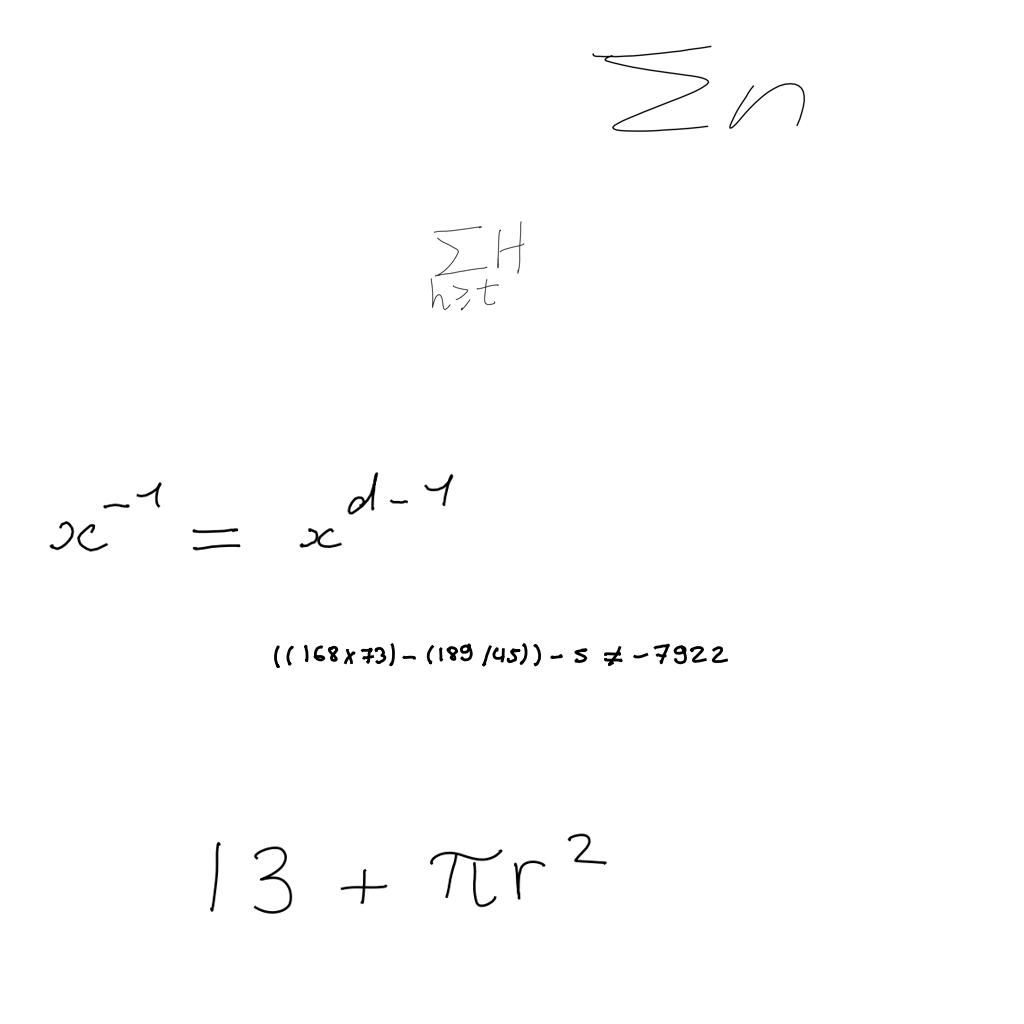 ∑n
∑_{h≥t} H
x^{-1} = x^{d-1}
((168×73)-(189/45))-s≠-7922
13+πr²